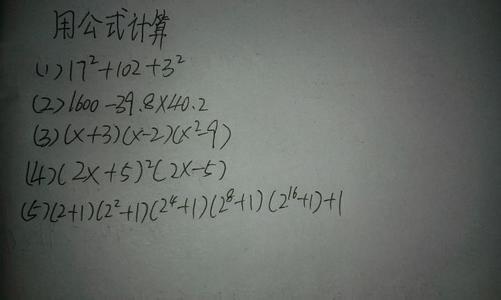 用公式计算
(1)17²+102+3²
(2)1600-39.8×40.2
(3)(x+3)(x-2)(x²-9)
(4)(2x+5)²(2x-5)
(5)(2+1)(2²+1)(2⁴+1)(2⁸+1)(2¹⁶+1)+1